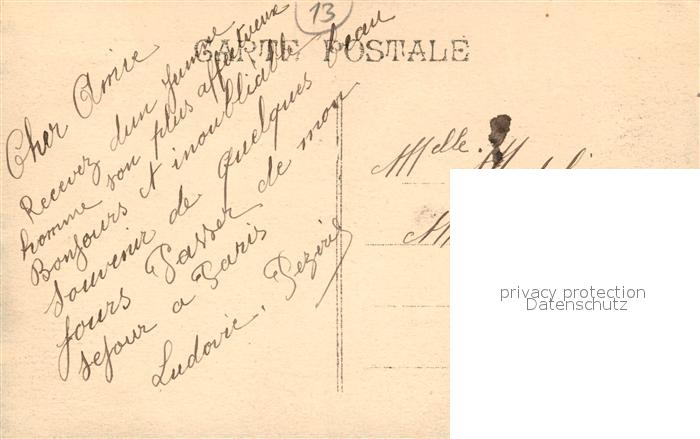 13
CARTE POSTALE
Cher Amie
Recevez d'un jeune
homme son plus affectueux
Bonjours et inoubliable beau
souvenir de quelques
jours Passer de mon
sejour a Paris
Ludovic,
Melle.
privacy protection
Datenschutz